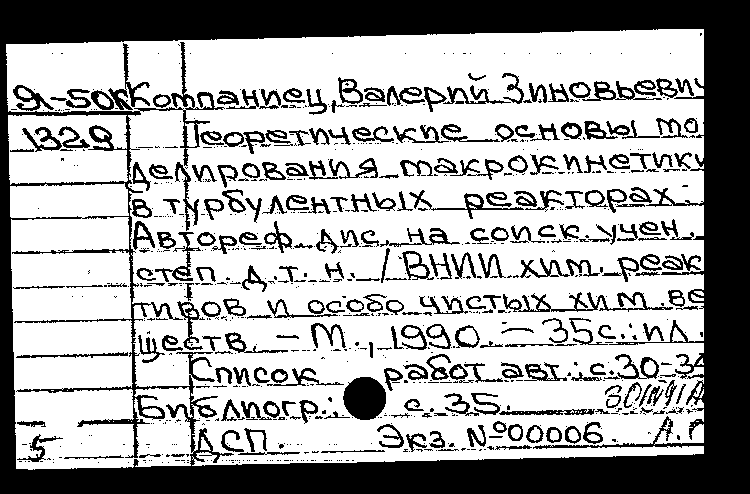 9л-50К Компаниец, Валерий Зиновьевич
1329 Теоретические основы мо
делирования макрокинетики
в турбулентных реакторах:
Автореф. дис. на соиск. учен.
степ. д.т.н. / ВНИИ хим. реак
тивов и особо чистых хим. ве
ществ. – М., 1990. – 35с.: ил.
Список работ авт.: с.30-34
Библиогр.: с. 35.
5 ДСП. Экз. №00006.